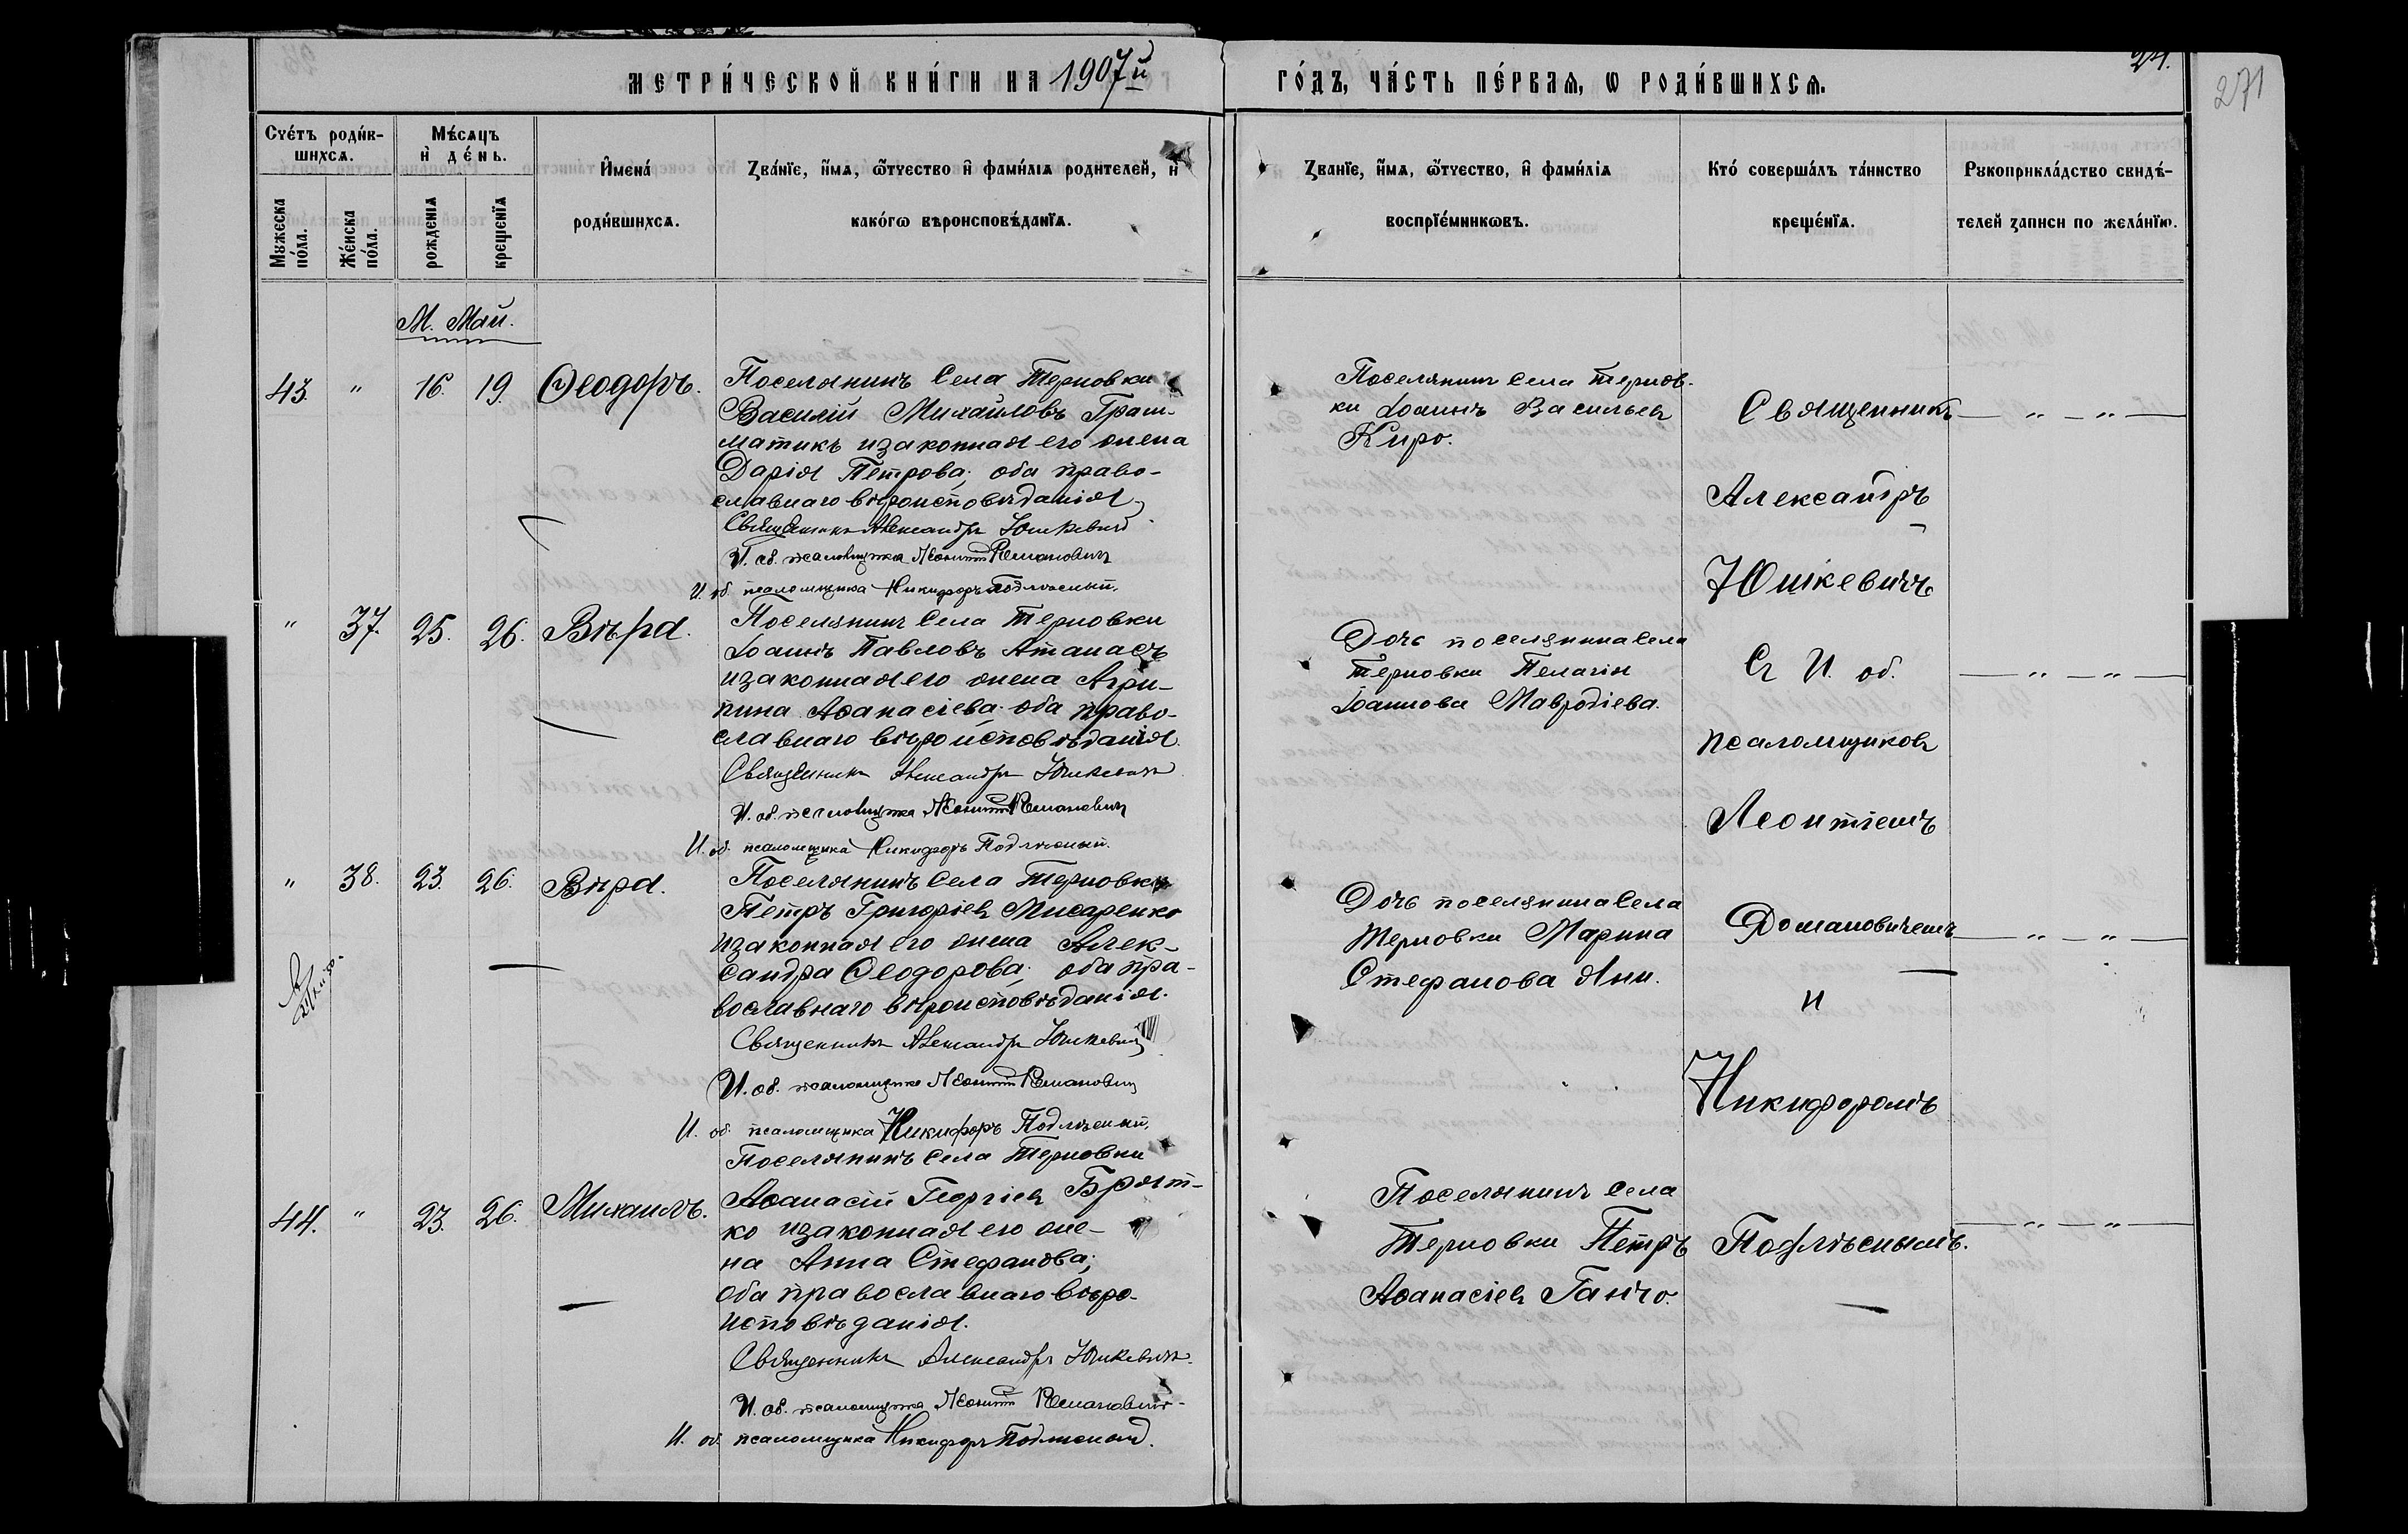 МЕТРИ́ЧЕСКОЙ КНИ́ГИ НА 1907й
ГО́ДЪ, ЧА́СТЬ ПЕ́РВАЯ, Ѡ РОДИ́ВШИХСЯ.
24.
271
Счетъ родив-
шихся.
Мужеска пола.
Женска пола.
Мѣсяцъ
и день.
рожденія
крещенія
Имена
родившихся.
Званїе, имя, ѿчество и фамилія родителей, и
какогѡ вѣроисповѣданїя.
Званїе, имя, ѿчество, и фамилія
воспрїемникѡвъ.
Кто совершалъ таинство
крещенїя.
Рукоприкладство свидѣ-
телей записи по желанїю.
М. Май.
43. " 16. 19. Ѳеодоръ.
Поселянинъ Села Терновки
Василій Михайловъ Грам-
матикъ и законная его жена
Дарія Петрова; оба право-
славнаго вѣроисповѣданія
Священникъ Александръ Юшкевичъ
И. об. псаломщика Леонтій Романовичъ
И. об. псаломщика Никифоръ Подлѣсный.
Поселянинъ Села Тернов-
ки Іоаннъ Васильевъ
Киро.
" 37. 25. 26. Вѣра.
Поселянинъ Села Терновки
Іоаннъ Павловъ Атанасъ
и законная его жена Агри-
пина Аѳанасіева; оба право-
славнаго вѣроисповѣданія.
Священникъ Александръ Юшкевичъ
И. об. псаломщика Леонтій Романовичъ
И. об. псаломщика Никифоръ Подлѣсный.
Дочь поселянина Села
Терновки Пелагія
Іоаннова Мавродіева.
" 38. 23. 26. Вѣра.
Поселянинъ Села Терновки
Петръ Григоріевъ Писаренко
и законная его жена Алек-
сандра Ѳеодорова; оба пра-
вославнаго вѣроисповѣданія.
Священникъ Александръ Юшкевичъ
И. об. псаломщика Леонтій Романовичъ
И. об. псаломщика Никифоръ Подлѣсный.
Дочь поселянина Села
Терновки Марина
Стефанова Яни.
44. " 23. 26. Михаилъ.
Поселянинъ Села Терновки
Аѳанасій Георгіевъ Брат-
ко и законная его же-
на Анна Стефанова;
оба православнаго вѣро-
исповѣданія.
Священникъ Александръ Юшкевичъ.
И. об. псаломщика Леонтій Романовичъ
И. об. псаломщика Никифоръ Подлѣсный.
Поселянинъ Села
Терновки Петръ
Аѳанасіевъ Ганчо.
Священникъ
Александръ
Юшкевичъ
Съ И. об.
псаломщиковъ
Леонтіемъ
Романовичемъ
и
Никифоромъ
Подлѣснымъ.